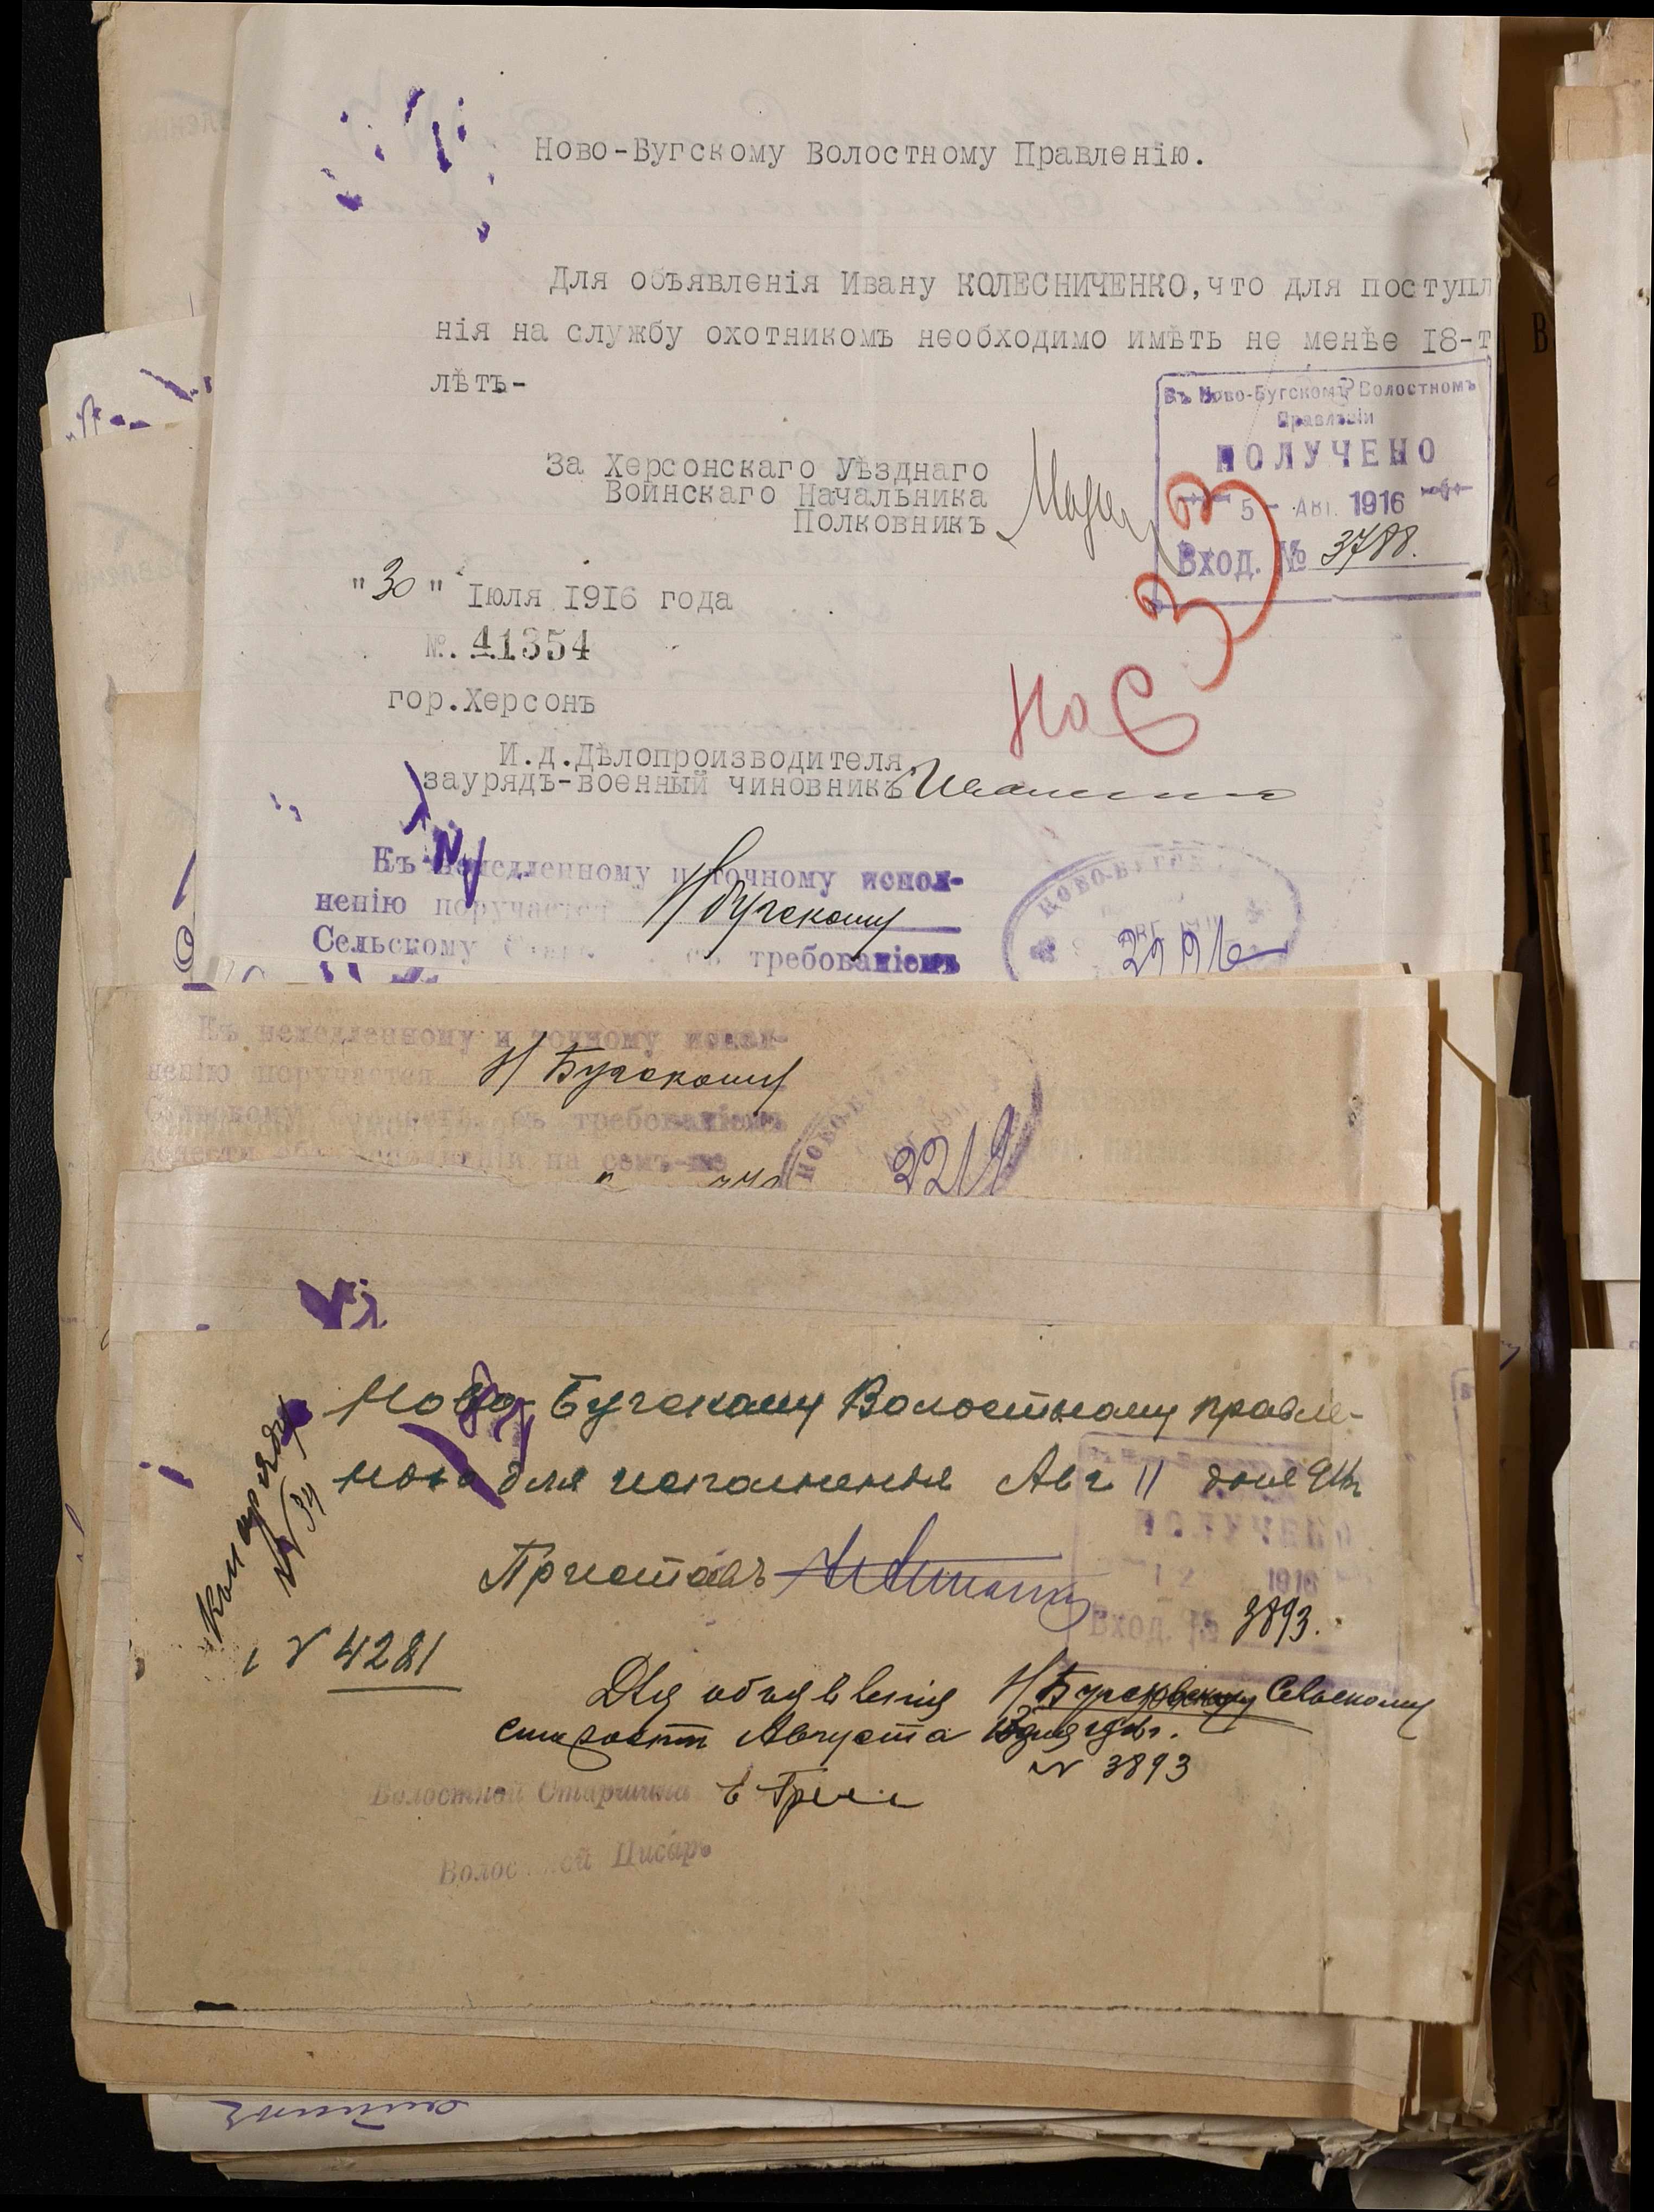 Ново-Бугскому Волостному Правленію.
Для объявленія Ивану КОЛЕСНИЧЕНКО, что для поступл
нія на службу охотникомъ необходимо имѣть не менѣе I8-т
лѣтъ-
Въ Ново-Бугскомъ Волостномъ
Правленіи
ПОЛУЧЕНО
5 - АВГ. 1916
Вход. № 3788.
За Херсонскаго Уѣзднаго
Воинскаго Начальника
Полковникъ
33
"30" Іюля I9I6 года
№. 41354
гор.Херсонъ
На С
И.д.Дѣлопроизводителя,
заурядъ-военный чиновникъ
Къ немедленному и точному испол-
ненію поручается Н Бугскому
Сельскому съ требованіемъ
НОВО-БУГСК
Къ немедленному и точному испол-
ненію поручается Н Бугскому
Сельскому съ требованіемъ
на семъ-же
НОВО-Б
2219
Ново-Бугскому Волостному правле-
для исполненія Авг 11 дня
ПОЛУЧЕНО
12 1916
Приставъ
Вход. № 3893.
№ 34
№ 4281
Для объявленія Н Бугскому Сельскому
старостѣ Августа
№ 3893
Волостной Старшина
Волостной Писарь